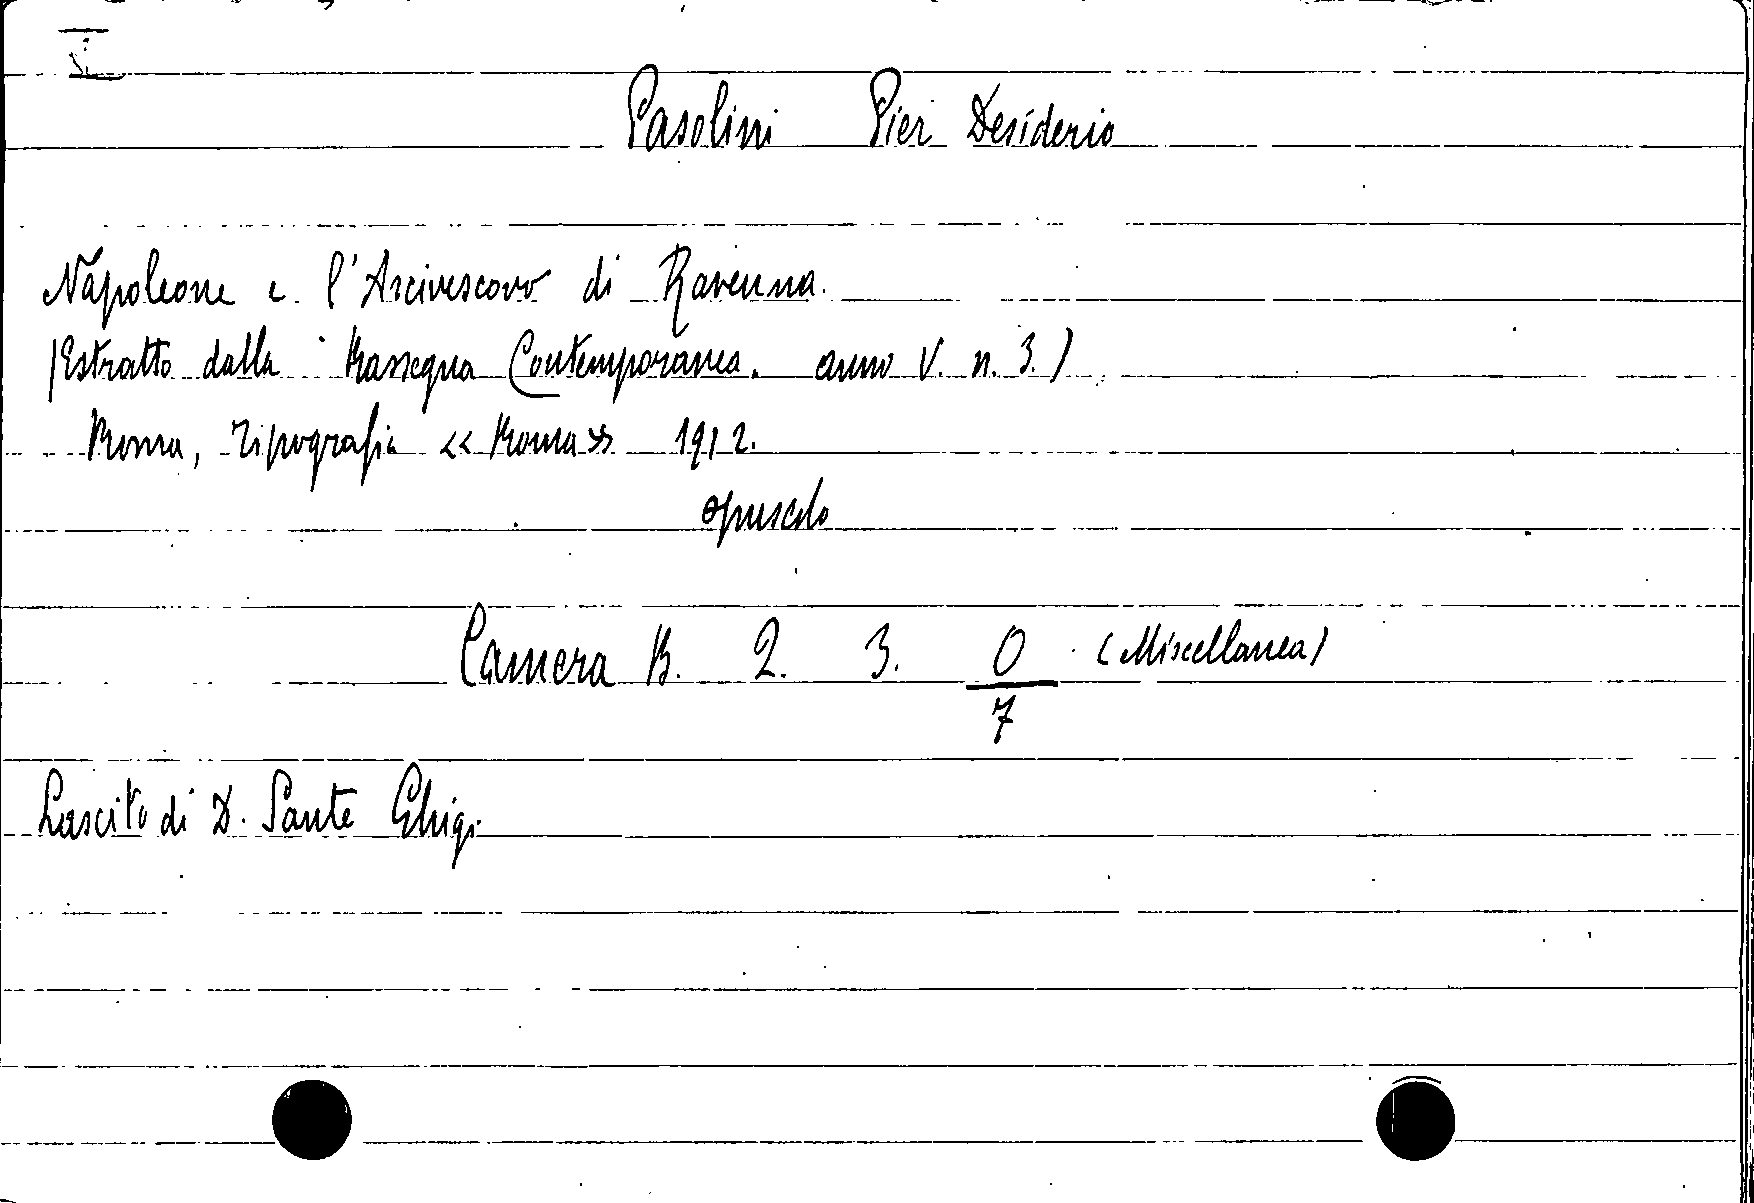 Pasolini Pier Desiderio
Napoleone e l'Arcivescovo di Ravenna.
(Estratto dalla Rassegna Contemporanea. anno V. n. 3.)
Roma, Tipografia << Roma >> 1912.
opuscolo
Camera B. 2. 3. 0 (Miscellanea)
7
Lascito di D. Sante Ghigi